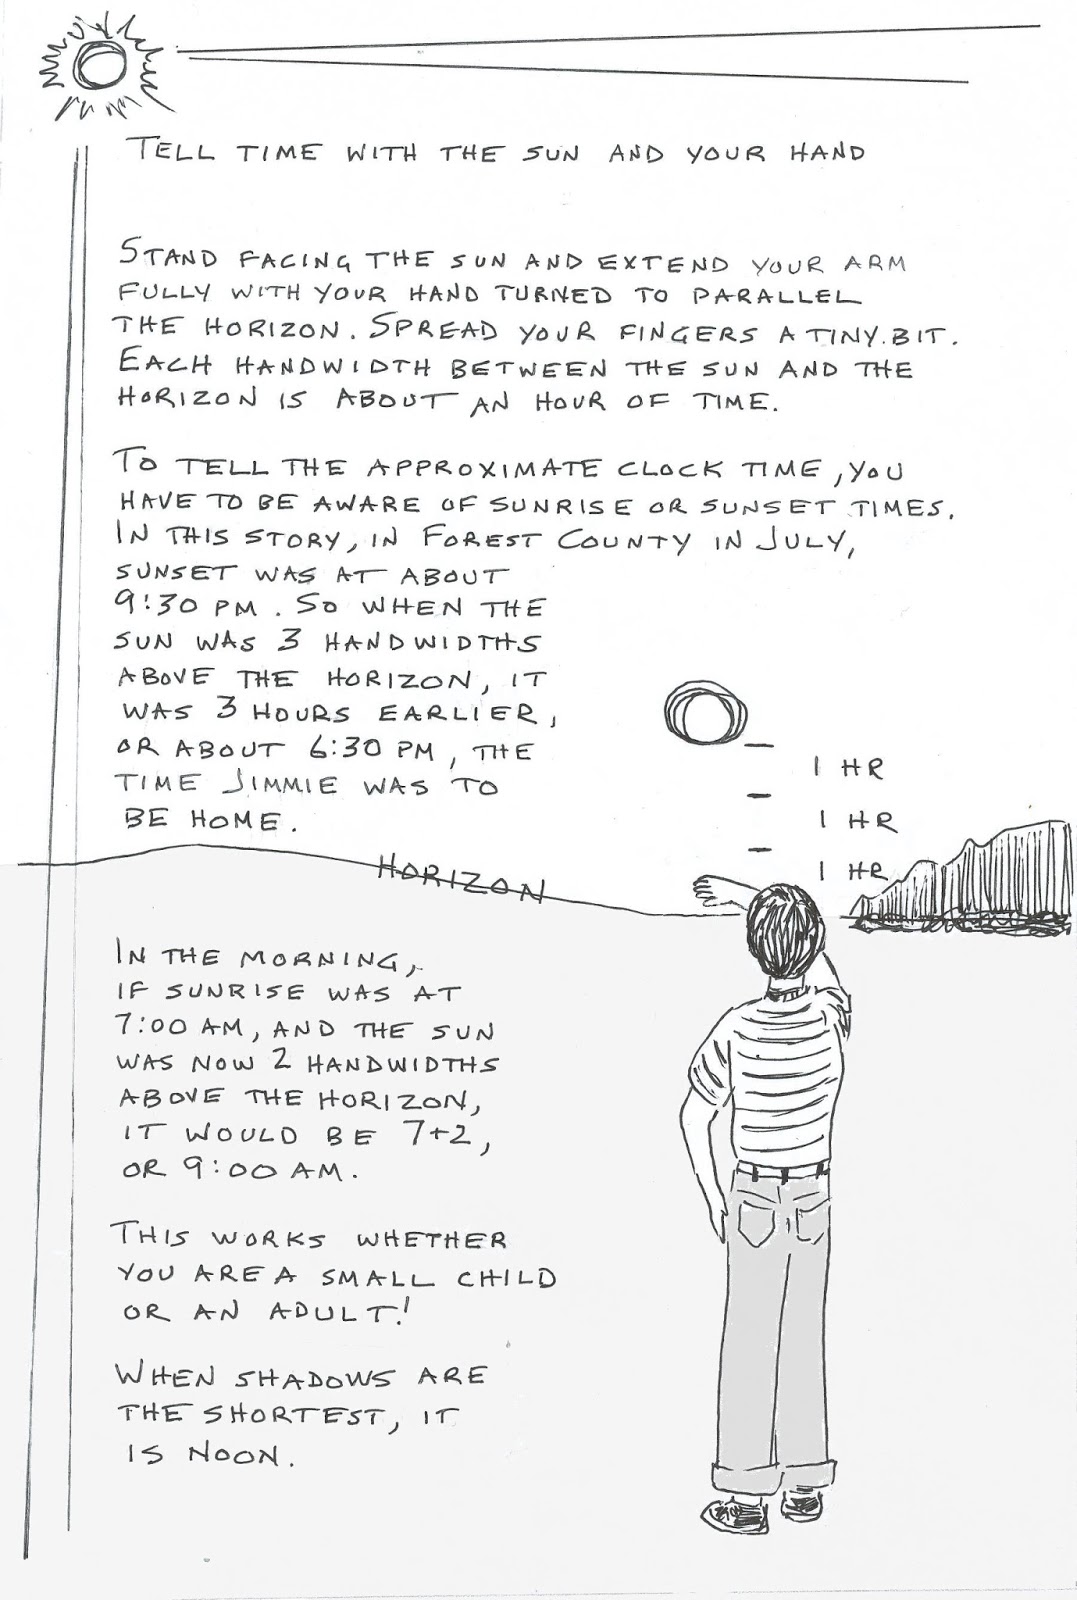 TELL TIME WITH THE SUN AND YOUR HAND
STAND FACING THE SUN AND EXTEND YOUR ARM
FULLY WITH YOUR HAND TURNED TO PARALLEL
THE HORIZON. SPREAD YOUR FINGERS A TINY BIT.
EACH HANDWIDTH BETWEEN THE SUN AND THE
HORIZON IS ABOUT AN HOUR OF TIME.
TO TELL THE APPROXIMATE CLOCK TIME, YOU
HAVE TO BE AWARE OF SUNRISE OR SUNSET TIMES.
IN THIS STORY, IN FOREST COUNTY IN JULY,
SUNSET WAS AT ABOUT
9:30 PM. SO WHEN THE
SUN WAS 3 HANDWIDTHS
ABOVE THE HORIZON, IT
WAS 3 HOURS EARLIER,
OR ABOUT 6:30 PM, THE
TIME JIMMIE WAS TO
BE HOME.
1 HR
1 HR
1 HR
HORIZON
IN THE MORNING,
IF SUNRISE WAS AT
7:00 AM, AND THE SUN
WAS NOW 2 HANDWIDTHS
ABOVE THE HORIZON,
IT WOULD BE 7+2,
OR 9:00 AM.
THIS WORKS WHETHER
YOU ARE A SMALL CHILD
OR AN ADULT!
WHEN SHADOWS ARE
THE SHORTEST, IT
IS NOON.